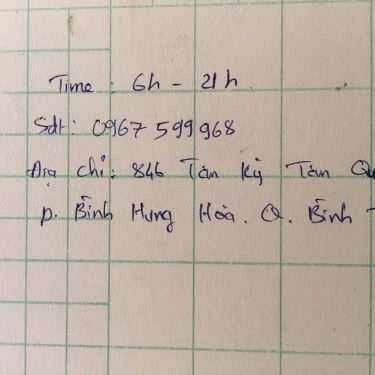 Time : 6h - 21h.
Sdt: 0967 599 968
Địa chỉ: 846 Tân Kỳ Tân Qu
p. Bình Hưng Hòa. Q. Bình